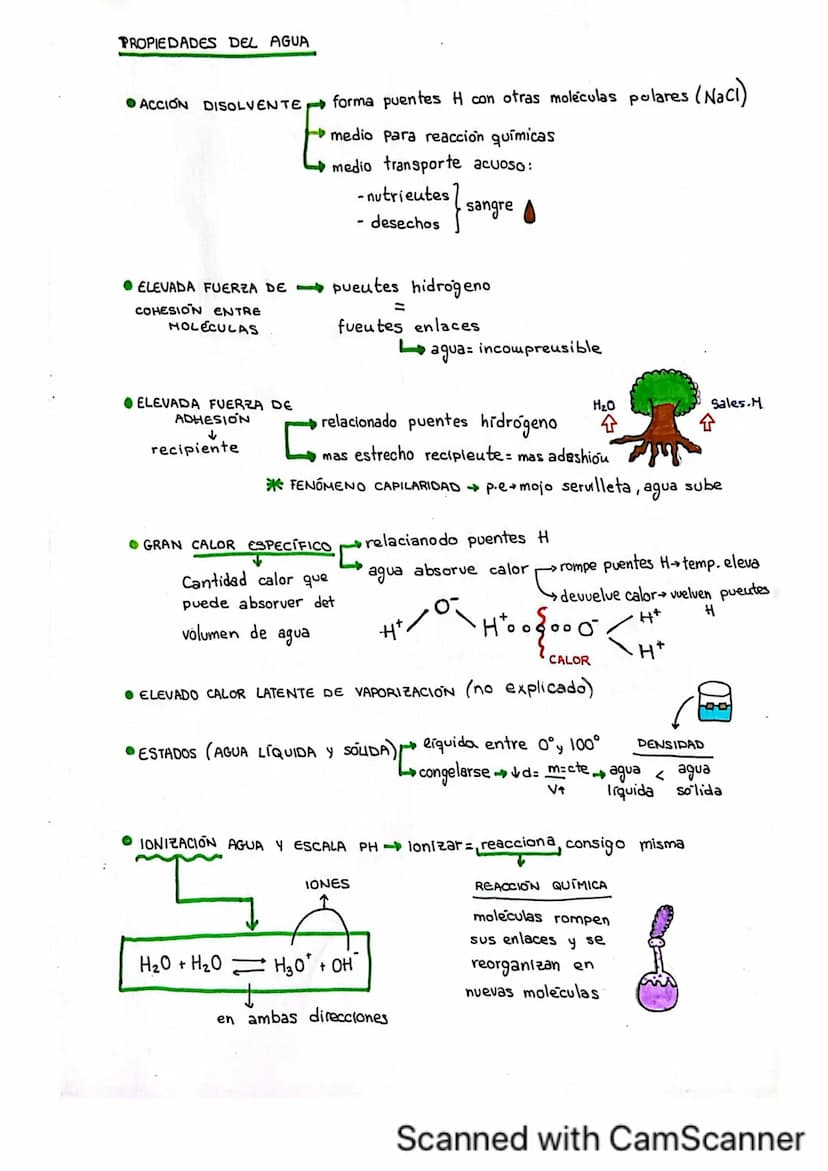 PROPIEDADES DEL AGUA
• ACCIÓN DISOLVENTE → forma puentes H con otras moléculas polares (NaCl)
→ medio para reacción químicas
→ medio transporte acuoso:
- nutrientes
- desechos
} sangre
• ELEVADA FUERZA DE COHESIÓN ENTRE MOLÉCULAS → puentes hidrógeno
=
fuentes enlaces
↳ agua = incompreusible
• ELEVADA FUERZA DE ADHESIÓN
↓
recipiente
→ relacionado puentes hidrógeno
→ mas estrecho recipiente = mas adeshión
H₂O
Sales.M
* FENÓMENO CAPILARIDAD → p.e → mojo serulleta, agua sube
• GRAN CALOR ESPECÍFICO → relacianodo puentes H
↓
Cantidad calor que
puede absorver det
volumen de agua
→ agua absorve calor → rompe puentes H → temp. eleva
→ devuelve calor → vuelven puentes H
H⁺ O⁻ H⁺ooooo O⁻ H⁺
H⁺
CALOR
• ELEVADO CALOR LATENTE DE VAPORIZACIÓN (no explicado)
• ESTADOS (AGUA LÍQUIDA Y SÓLIDA) → líquida entre 0° y 100°
→ congelarse → ↓d = m=cte / V↑ → agua líquida < agua sólida
DENSIDAD
• IONIZACIÓN AGUA Y ESCALA PH → Ionizar = reacciona consigo misma
IONES
H₂O + H₂O ⇌ H₃O⁺ + OH⁻
↓
en ambas direcciones
REACCIÓN QUÍMICA
moléculas rompen
sus enlaces y se
reorganizan en
nuevas moléculas
Scanned with CamScanner